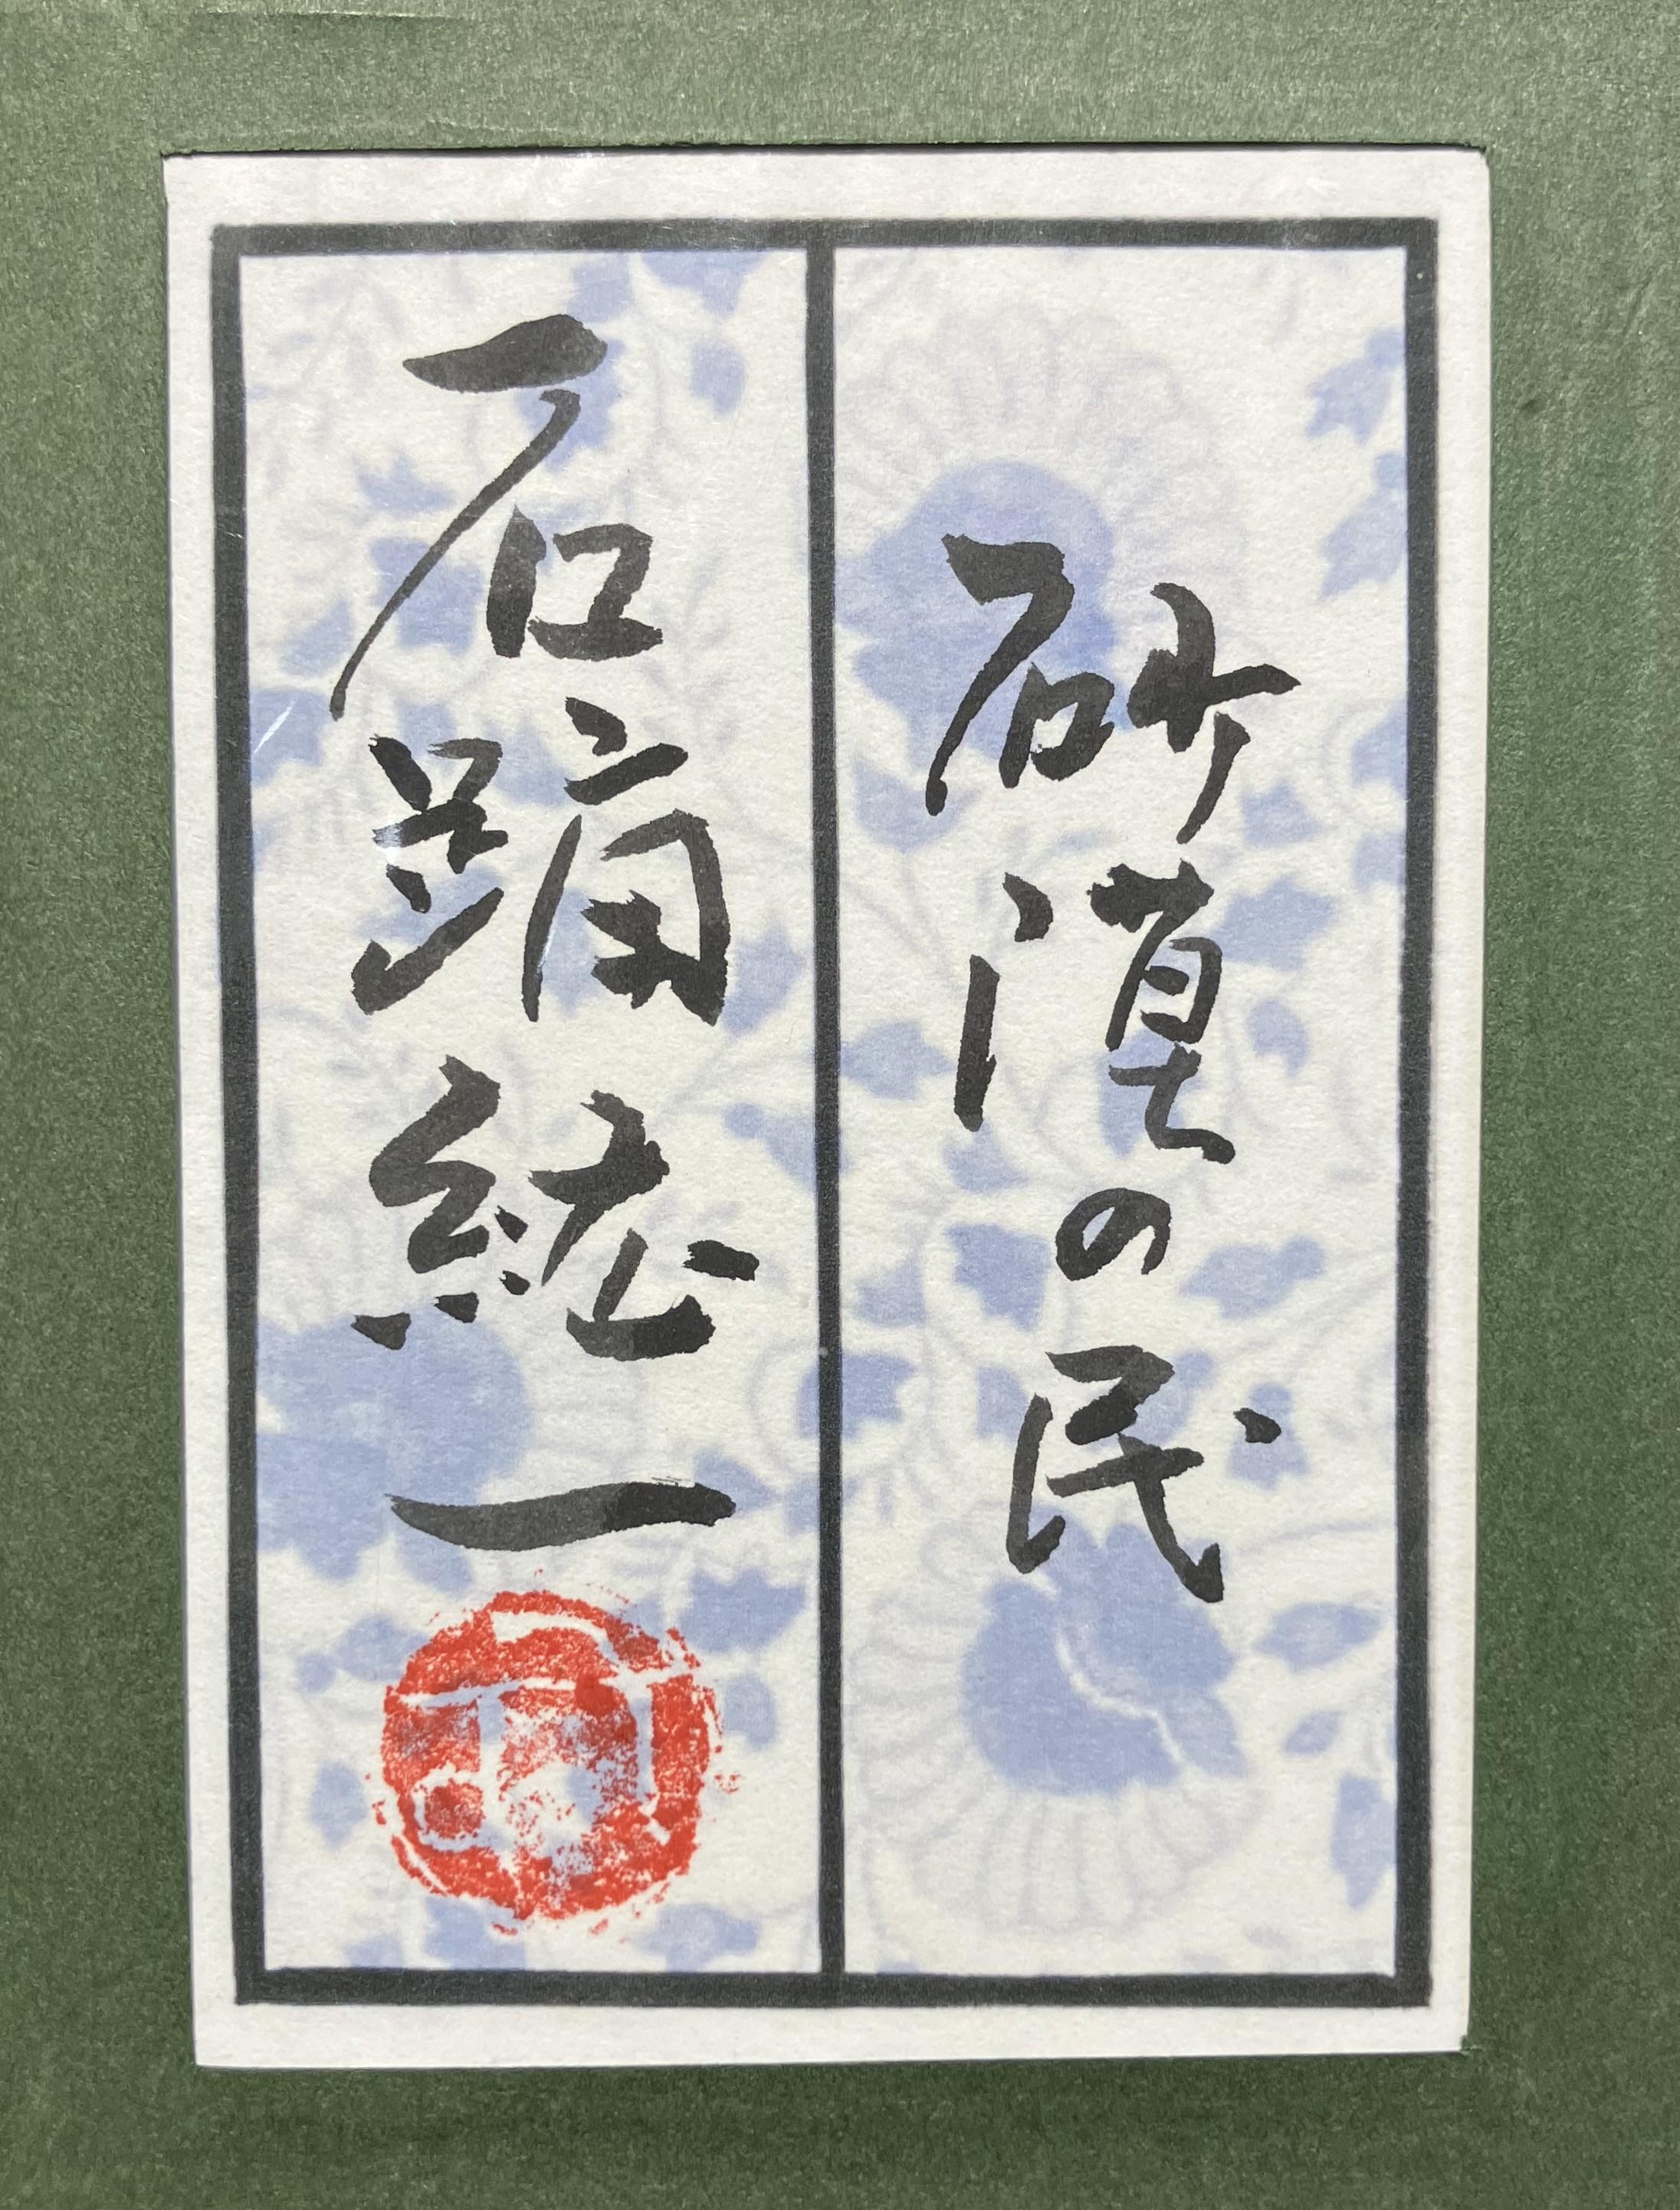 砂漠の民
石踊紘一